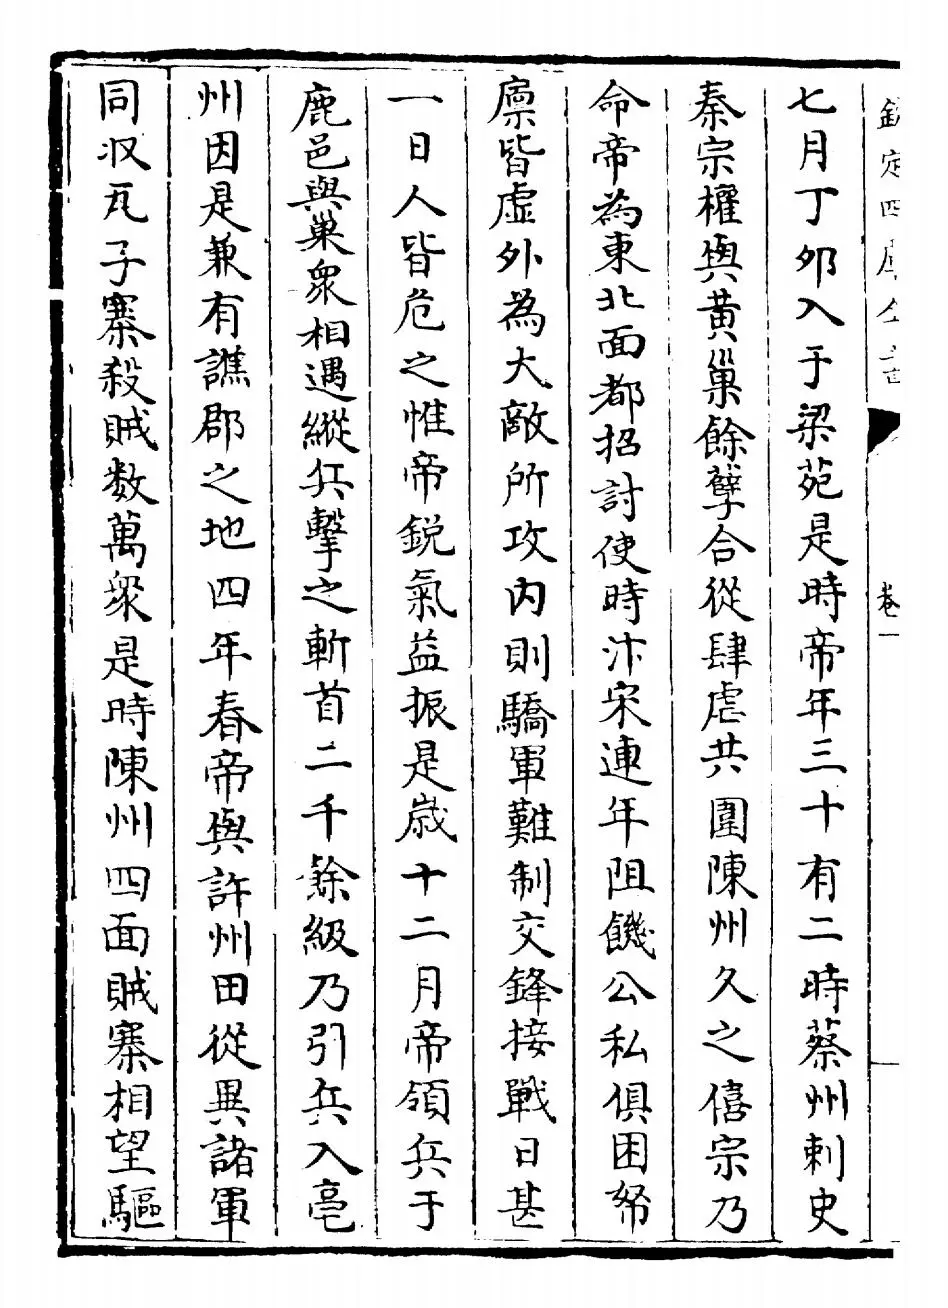 欽定四庫全書
卷一
七月丁夘入于梁苑是時帝年三十有二時蔡州刺史
秦宗權與黄巢餘孽合從肆虐共圍陳州久之僖宗乃
命帝為東北面都招討使時汴宋連年阻饑公私俱困帑
廪皆虚外為大敵所攻内則驕軍難制交鋒接戰日甚
一日人皆危之惟帝鋭氣益振是歳十二月帝領兵于
鹿邑與巢衆相遇縱兵擊之斬首二千餘級乃引兵入亳
州因是兼有譙郡之地四年春帝與許州田從異諸軍
同收瓦子寨殺賊数萬衆是時陳州四面賊寨相望驅